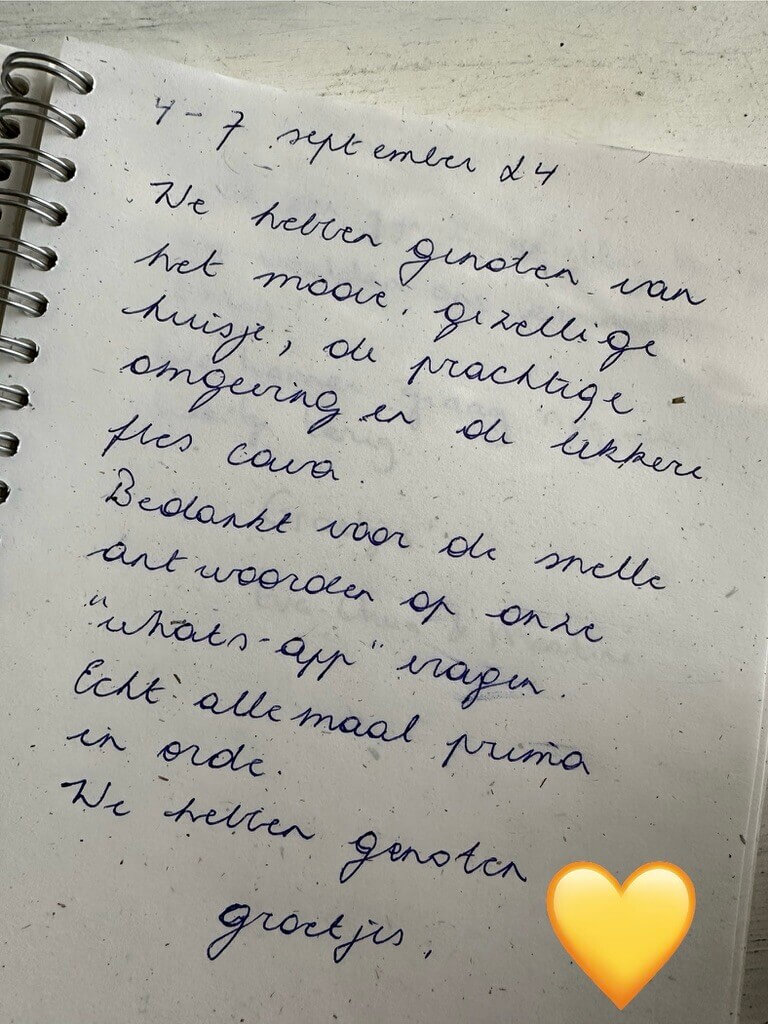 4 - 7 september 24
We hebben genoten van
het mooie, gezellige
huisje, de prachtige
omgeving en de lekkere
fles cava.
Bedankt voor de snelle
antwoorden op onze
"whats-app" vragen.
Echt allemaal prima
in orde.
We hebben genoten
groetjes,